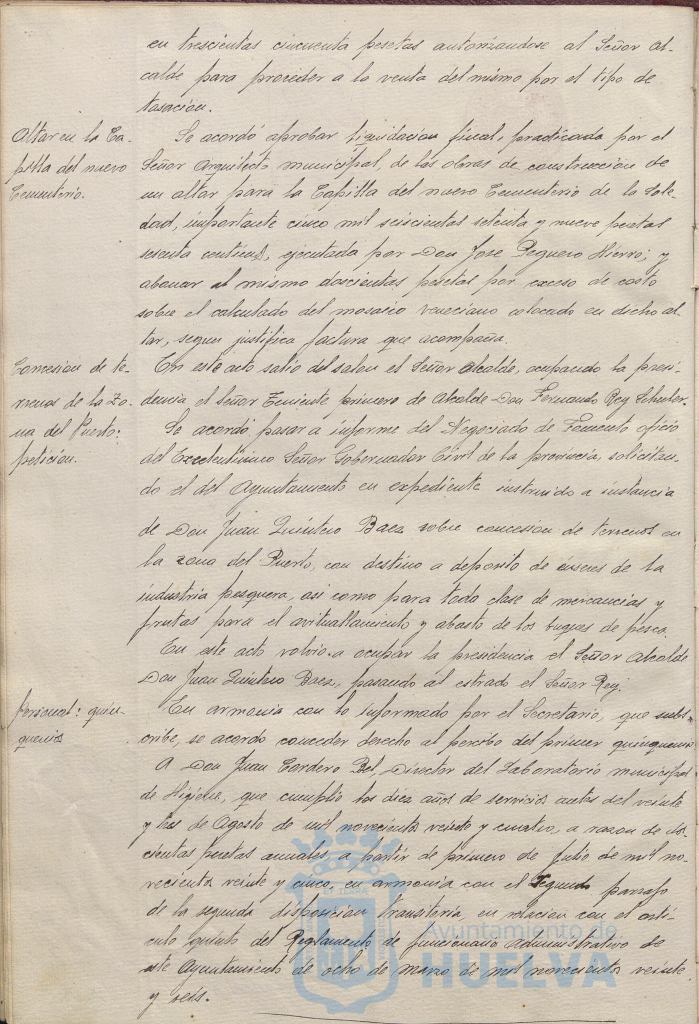 en trescientas cincuenta pesetas autorizandose al Señor Al-
calde para proceder a la venta del mismo por el tipo de
tasación.
Altar en la Ca-
pilla del nuevo
Cementerio.
Se acordó aprobar liquidacion final, practicada por el
Señor Arquitecto municipal, de las obras de construcción de
un altar para la Capilla del nuevo Cementerio de la Sole-
dad, importante cinco mil seiscientas setenta y nueve pesetas
sesenta centimos, ejecutada por Don Jose Peguero Hierro; y
abonar al mismo doscientas pesetas por exceso de costo
sobre el calculado del mosaico veneciano colocado en dicho al-
tar, segun justifica factura que acompaña.
Concesion de te-
rrenos de la Zo-
na del Puerto:
peticion.
En este acto salió del salon el Señor Alcalde, ocupando la presi-
dencia el Señor Teniente primero de Alcalde Don Fernando Rey
Se acordó pasar a informe del Negociado de Fomento oficio
del Excelentisimo Señor Gobernador Civil de la provincia, solicitan-
do el del Ayuntamiento en expediente instruido a instancia
de Don Juan Quintero Baez sobre concesion de terrenos en
la zona del Puerto, con destino a deposito de enseres de la
industria pesquera, asi como para toda clase de mercancias y
frutas para el avituallamiento y abasto de los buques de pesca.
En este acto volvio a ocupar la presidencia el Señor Alcalde
Don Juan Quintero Baez, pasando al estrado el Señor Rey.
Personal: quin-
quenios
En armonia con lo informado por el Secretario, que subs-
cribe, se acordo conceder derecho al percibo del primer quinquenio
A Don Juan Cordero Bel, Director del Laboratorio municipal
de Higiene, que cumplió los diez años de servicios antes del veinte
y tres de Agosto de mil novecientos veinte y cuatro, a razon de dos-
cientas pesetas anuales, a partir de primero de Julio de mil no-
vecientos veinte y cinco, en armonia con el segundo parrafo
de la segunda disposicion transitoria, en relacion con el arti-
culo quinto del Reglamento de funcionario administrativo de
este Ayuntamiento de ocho de marzo de mil novecientos veinte
y seis.
Ayuntamiento de
HUELVA